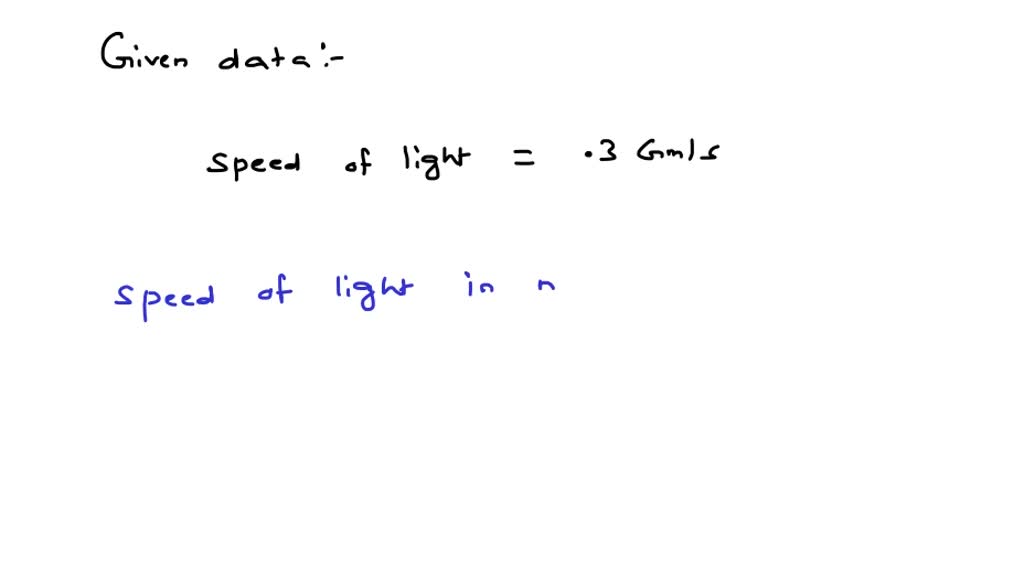 Given data :-
speed of light = .3 Gm/s
speed of light in n